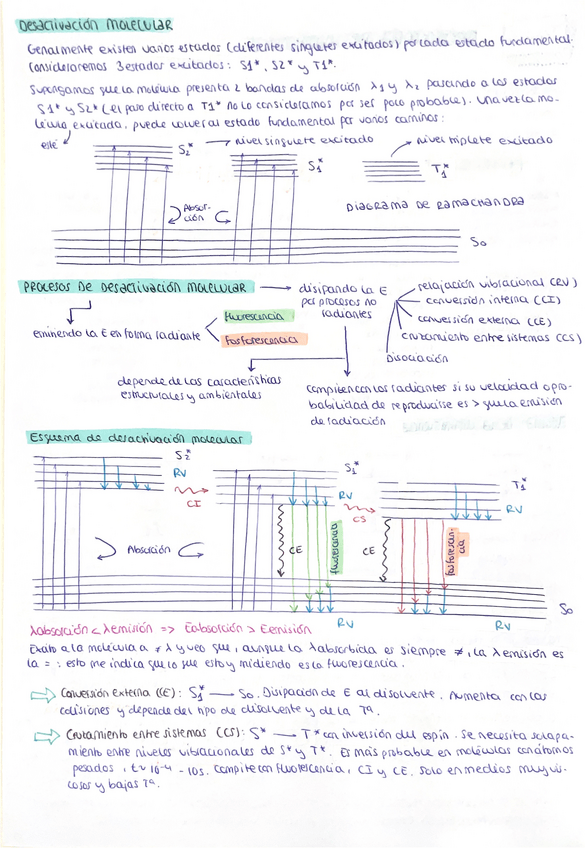 Desactivación molecular
Generalmente existen varios estados (diferentes singletes excitados) por cada estado fundamental.
Consideraremos 3 estados excitados: S1*, S2* y T1*.
Supongamos que la molécula presenta 2 bandas de absorción λ1 y λ2 pasando a los estados
S1* y S2* (el paso directo a T1* no lo consideramos por ser poco probable). Una vez la mo-
lécula excitada, puede volver al estado fundamental por varios caminos:
S2* → nivel singulete excitado
nivel triplete excitado
S1*
T1*
Absor-
ción
DIAGRAMA DE RAMACHANDRA
S0
PROCESOS DE DESACTIVACIÓN MOLECULAR → disipando la E
por procesos no
radiantes
relajación vibracional (RV)
conversión interna (CI)
conversión externa (CE)
cruzamiento entre sistemas (CS)
Disociación
emitiendo la E en forma radiante
fluorescencia
fosforescencia
depende de las características
estructurales y ambientales
compiten con las radiantes si su velocidad o pro-
babilidad de reproducirse es > que la emisión
de radiación
Esquema de desactivación molecular
S2*
RV
CI
S1*
RV
CS
T1*
RV
Absorción
CE
fluorescencia
CE
fosforescen-
cia
S0
RV
RV
λabsorción < λemisión => Eabsorción > Eemisión
Excito a la molécula a ≠ λ y veo que, aunque la λabsorbida es siempre ≠, la λ emisión es
la = : esto me indica que lo que estoy midiendo es la fluorescencia.
⇒ Conversión externa (CE): S1* — S0. Disipación de E al disolvente. Aumenta con las
colisiones y depende del tipo de disolvente y de la Tª.
⇒ Cruzamiento entre sistemas (CS): S* → T* con inversión del espín. Se necesita solapa-
miento entre niveles vibracionales de S* y T*. Es más probable en moléculas con átomos
pesados, t ~ 10-4 - 10s. Compite con fluorescencia, CI y CE. Solo en medios muy vis-
cosos y bajas Tª.